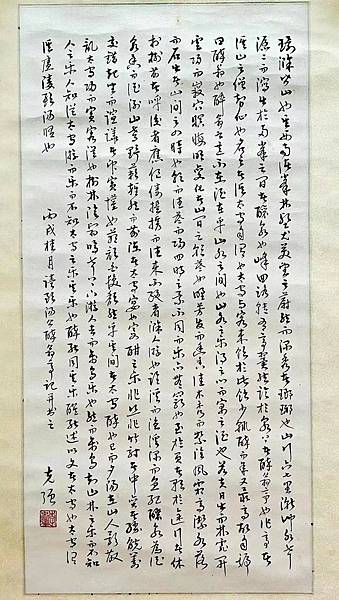 環滁皆山也其西南諸峰林壑尤美望之蔚然而深秀者瑯琊也山行六七里漸聞水聲
潺潺而瀉出於兩峰之間者釀泉也峰回路轉有亭翼然臨於泉上者醉翁亭也作亭者
誰山之僧智仙也名之者誰太守自謂也太守與客來飲於此飲少輒醉而年又最高故自號
曰醉翁也醉翁之意不在酒在乎山水之間也山水之樂得之心而寓之酒也若夫日出而林霏開
雲歸而巖穴暝晦明變化者山間之朝暮也野芳發而幽香佳木秀而繁陰風霜高潔水落
而石出者山間之四時也朝而往暮而歸四時之景不同而樂亦無窮也至於負者歌於途行者休
於樹前者呼後者應傴僂提攜往來而不絕者滁人遊也臨溪而漁溪深而魚肥釀泉為酒
泉香而酒洌山肴野蔌雜然而前陳者太守宴也宴酣之樂非絲非竹射者中弈者勝觥籌
交錯起坐而諠譁者衆賓懽也蒼顏白髮頹然乎其間者太守醉也已而夕陽在山人影散
亂太守歸而賓客從也樹林陰翳鳴聲上下遊人去而禽鳥樂也然而禽鳥知山林之樂而不知
人之樂人知從太守遊而樂而不知太守之樂其樂也醉能同其樂醒能述以文者太守也太守謂
誰廬陵歐陽脩也 丙戌桂月讀歐陽公醉翁亭記并書之
克強